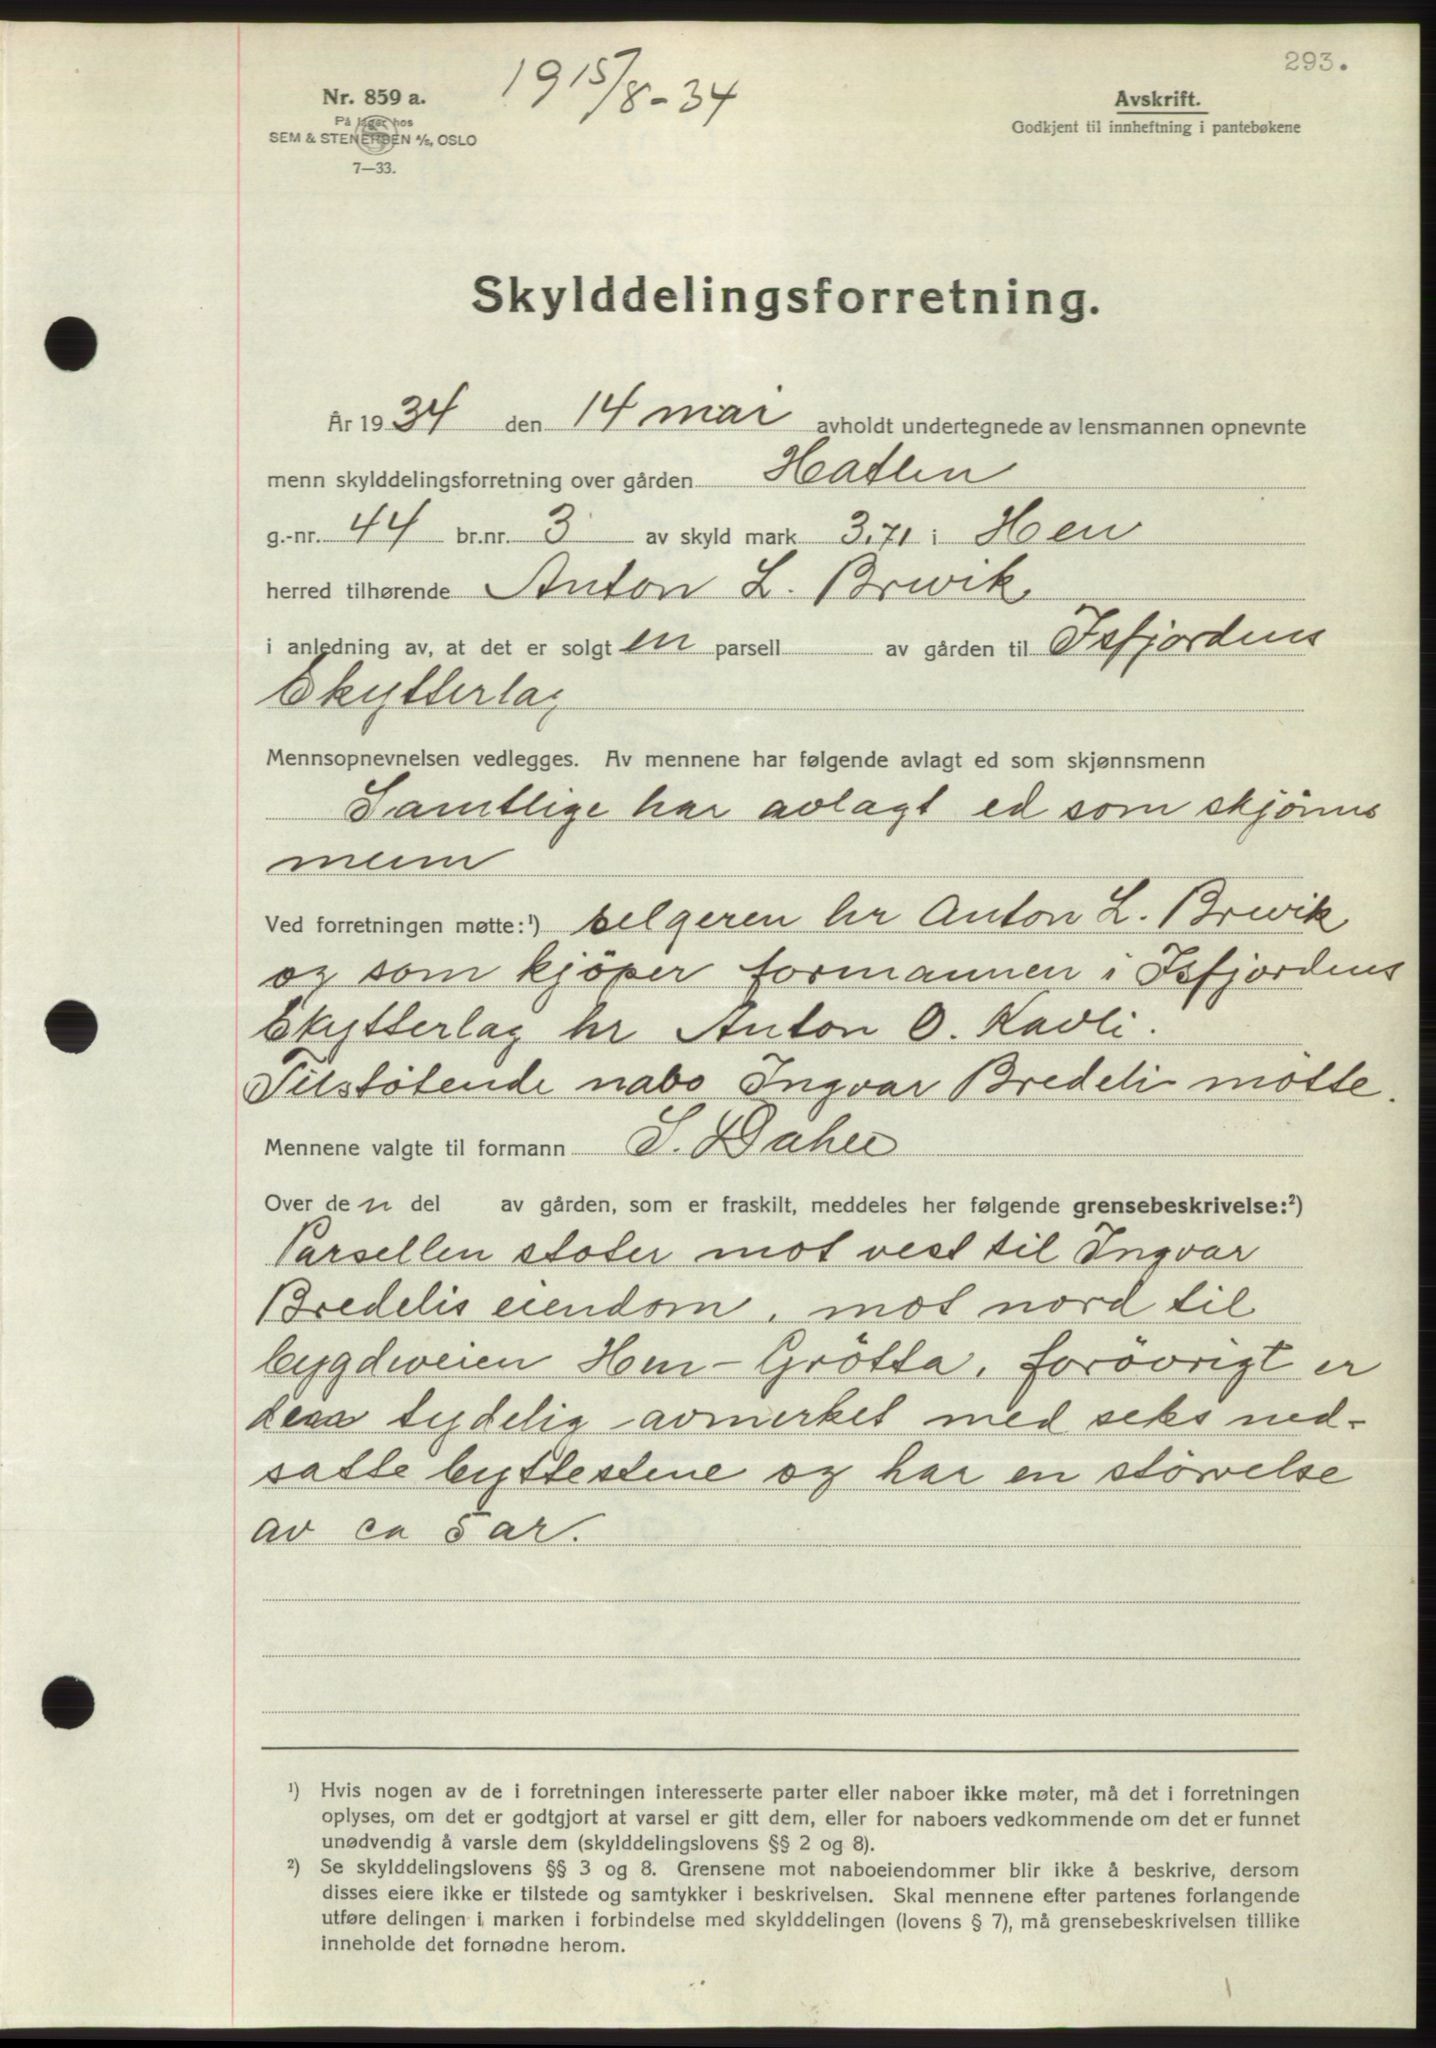 293.
1915/8-34
Nr. 859 a.
På lager hos
SEM & STENERSEN A/S, OSLO
7—33.
Avskrift.
Godkjent til innheftning i pantebøkene
Skylddelingsforretning.
År 1934 den 14 mai avholdt undertegnede av lensmannen opnevnte
menn skylddelingsforretning over gården Hatlen
g.-nr. 44 br.nr. 3 av skyld mark 3,71 i Hen
herred tilhørende Anton L. Brevik
i anledning av, at det er solgt en parsell av gården til Isfjordens
Skytterlag
Mennsopnevnelsen vedlegges. Av mennene har følgende avlagt ed som skjønnsmenn
Samtlige har avlagt ed som skjönns
menn
Ved forretningen møtte:¹) selgeren hr Anton L. Brevik
og som kjöper formannen i Isfjordens
Skytterlag hr Anton O. Kavli.
Tilstötende nabo Ingvar Bredeli mötte.
Mennene valgte til formann S. Dahle
Over den del av gården, som er fraskilt, meddeles her følgende grensebeskrivelse:²)
Parsellen stöter mot vest til Ingvar
Bredelis eiendom, mot nord til
bygdeveien Hen-Grötta, forövrigt er
den tydelig avmerket med seks ned-
satte byttestene og har en störrelse
av ca 5 ar.
¹) Hvis nogen av de i forretningen interesserte parter eller naboer ikke møter, må det i forretningen
oplyses, om det er godtgjort at varsel er gitt dem, eller for naboers vedkommende om det er funnet
unødvendig å varsle dem (skylddelingslovens §§ 2 og 8).
²) Se skylddelingslovens §§ 3 og 8. Grensene mot naboeiendommer blir ikke å beskrive, dersom
disses eiere ikke er tilstede og samtykker i beskrivelsen. Skal mennene efter partenes forlangende
utføre delingen i marken i forbindelse med skylddelingen (lovens § 7), må grensebeskrivelsen tillike
inneholde det fornødne herom.